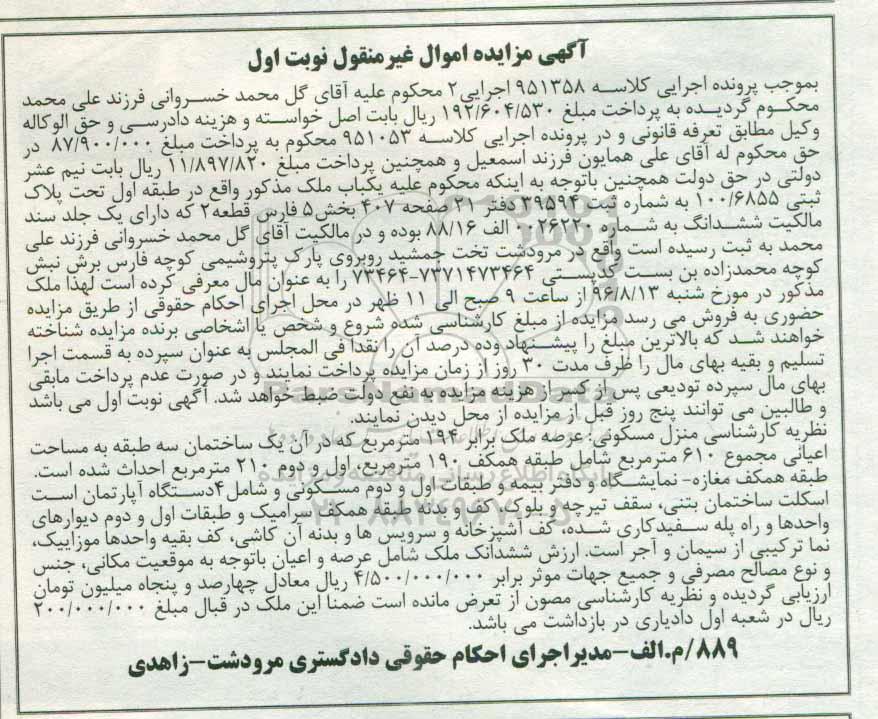 آگهی مزایده اموال غیرمنقول نوبت اول
بموجب پرونده اجرایی کلاسه ۹۵۱۳۵۸ اجرایی۲ محکوم علیه آقای گل محمد خسروانی فرزند علی محمد
محکوم گردیده به پرداخت مبلغ ۱۹۲/۶۰۴/۵۳۰ ریال بابت اصل خواسته و هزینه دادرسی و حق الوکاله
وکیل مطابق تعرفه قانونی و در پرونده اجرایی کلاسه ۹۵۱۰۵۳ محکوم به پرداخت مبلغ ۸۷/۹۰۰/۰۰۰ در
حق محکوم له آقای علی همایون فرزند اسمعیل و همچنین پرداخت مبلغ ۱۱/۸۹۷/۸۲۰ ریال بابت نیم عشر
دولتی در حق دولت همچنین باتوجه به اینکه محکوم علیه یکباب ملک مذکور واقع در طبقه اول تحت پلاک
ثبتی ۱۰۰/۶۸۵۵ به شماره ثبت ۳۹۵۹۴ دفتر ۲۱ صفحه ۴۰۷ بخش۵ فارس قطعه۲ که دارای یک جلد سند
مالکیت ششدانگ به شماره ۰۲۶۲۲۰ الف ۸۸/۱۶ بوده و در مالکیت آقای گل محمد خسروانی فرزند علی
محمد به ثبت رسیده است واقع در مرودشت تخت جمشید روبروی پارک پتروشیمی کوچه فارس برش نبش
کوچه محمدزاده بن بست کدپستی ۷۳۷۱۴۷۳۴۶۴-۷۳۴۶۴ را به عنوان مال معرفی کرده است لهذا ملک
مذکور در مورخ شنبه ۹۶/۸/۱۳ از ساعت ۹ صبح الی ۱۱ ظهر در محل اجرای احکام حقوقی از طریق مزایده
حضوری به فروش می رسد مزایده از مبلغ کارشناسی شده شروع و شخص یا اشخاصی برنده مزایده شناخته
خواهند شد که بالاترین مبلغ را پیشنهاد وده درصد آن را نقدا فی المجلس به عنوان سپرده به قسمت اجرا
تسلیم و بقیه بهای مال را ظرف مدت ۳۰ روز از زمان مزایده پرداخت نمایند و در صورت عدم پرداخت مابقی
بهای مال سپرده تودیعی پس از کسر از هزینه مزایده به نفع دولت ضبط خواهد شد. آگهی نوبت اول می باشد
و طالبین می توانند پنج روز قبل از مزایده از محل دیدن نمایند.
نظریه کارشناسی منزل مسکونی: عرصه ملک برابر ۱۹۴ مترمربع که در آن یک ساختمان سه طبقه به مساحت
اعیانی مجموع ۶۱۰ مترمربع شامل طبقه همکف ۱۹۰ مترمربع، اول و دوم ۲۱۰ مترمربع احداث شده است.
طبقه همکف مغازه- نمایشگاه و دفتر بیمه و طبقات اول و دوم مسکونی و شامل ۴دستگاه آپارتمان است
اسکلت ساختمان بتنی، سقف تیرچه و بلوک، کف و بدنه طبقه همکف سرامیک و طبقات اول و دوم دیوارهای
واحدها و راه پله سفیدکاری شده، کف آشپزخانه و سرویس ها و بدنه آن کاشی، کف بقیه واحدها موزاییک،
نما ترکیبی از سیمان و آجر است. ارزش ششدانک ملک شامل عرصه و اعیان باتوجه به موقعیت مکانی، جنس
و نوع مصالح مصرفی و جمیع جهات موثر برابر ۴/۵۰۰/۰۰۰/۰۰۰ ریال معادل چهارصد و پنجاه میلیون تومان
ارزیابی گردیده و نظریه کارشناسی مصون از تعرض مانده است ضمنا این ملک در قبال مبلغ ۲۰۰/۰۰۰/۰۰۰
ریال در شعبه اول دادیاری در بازداشت می باشد.
۸۸۹/م.الف-مدیراجرای احکام حقوقی دادگستری مرودشت-زاهدی
ParsNamadData